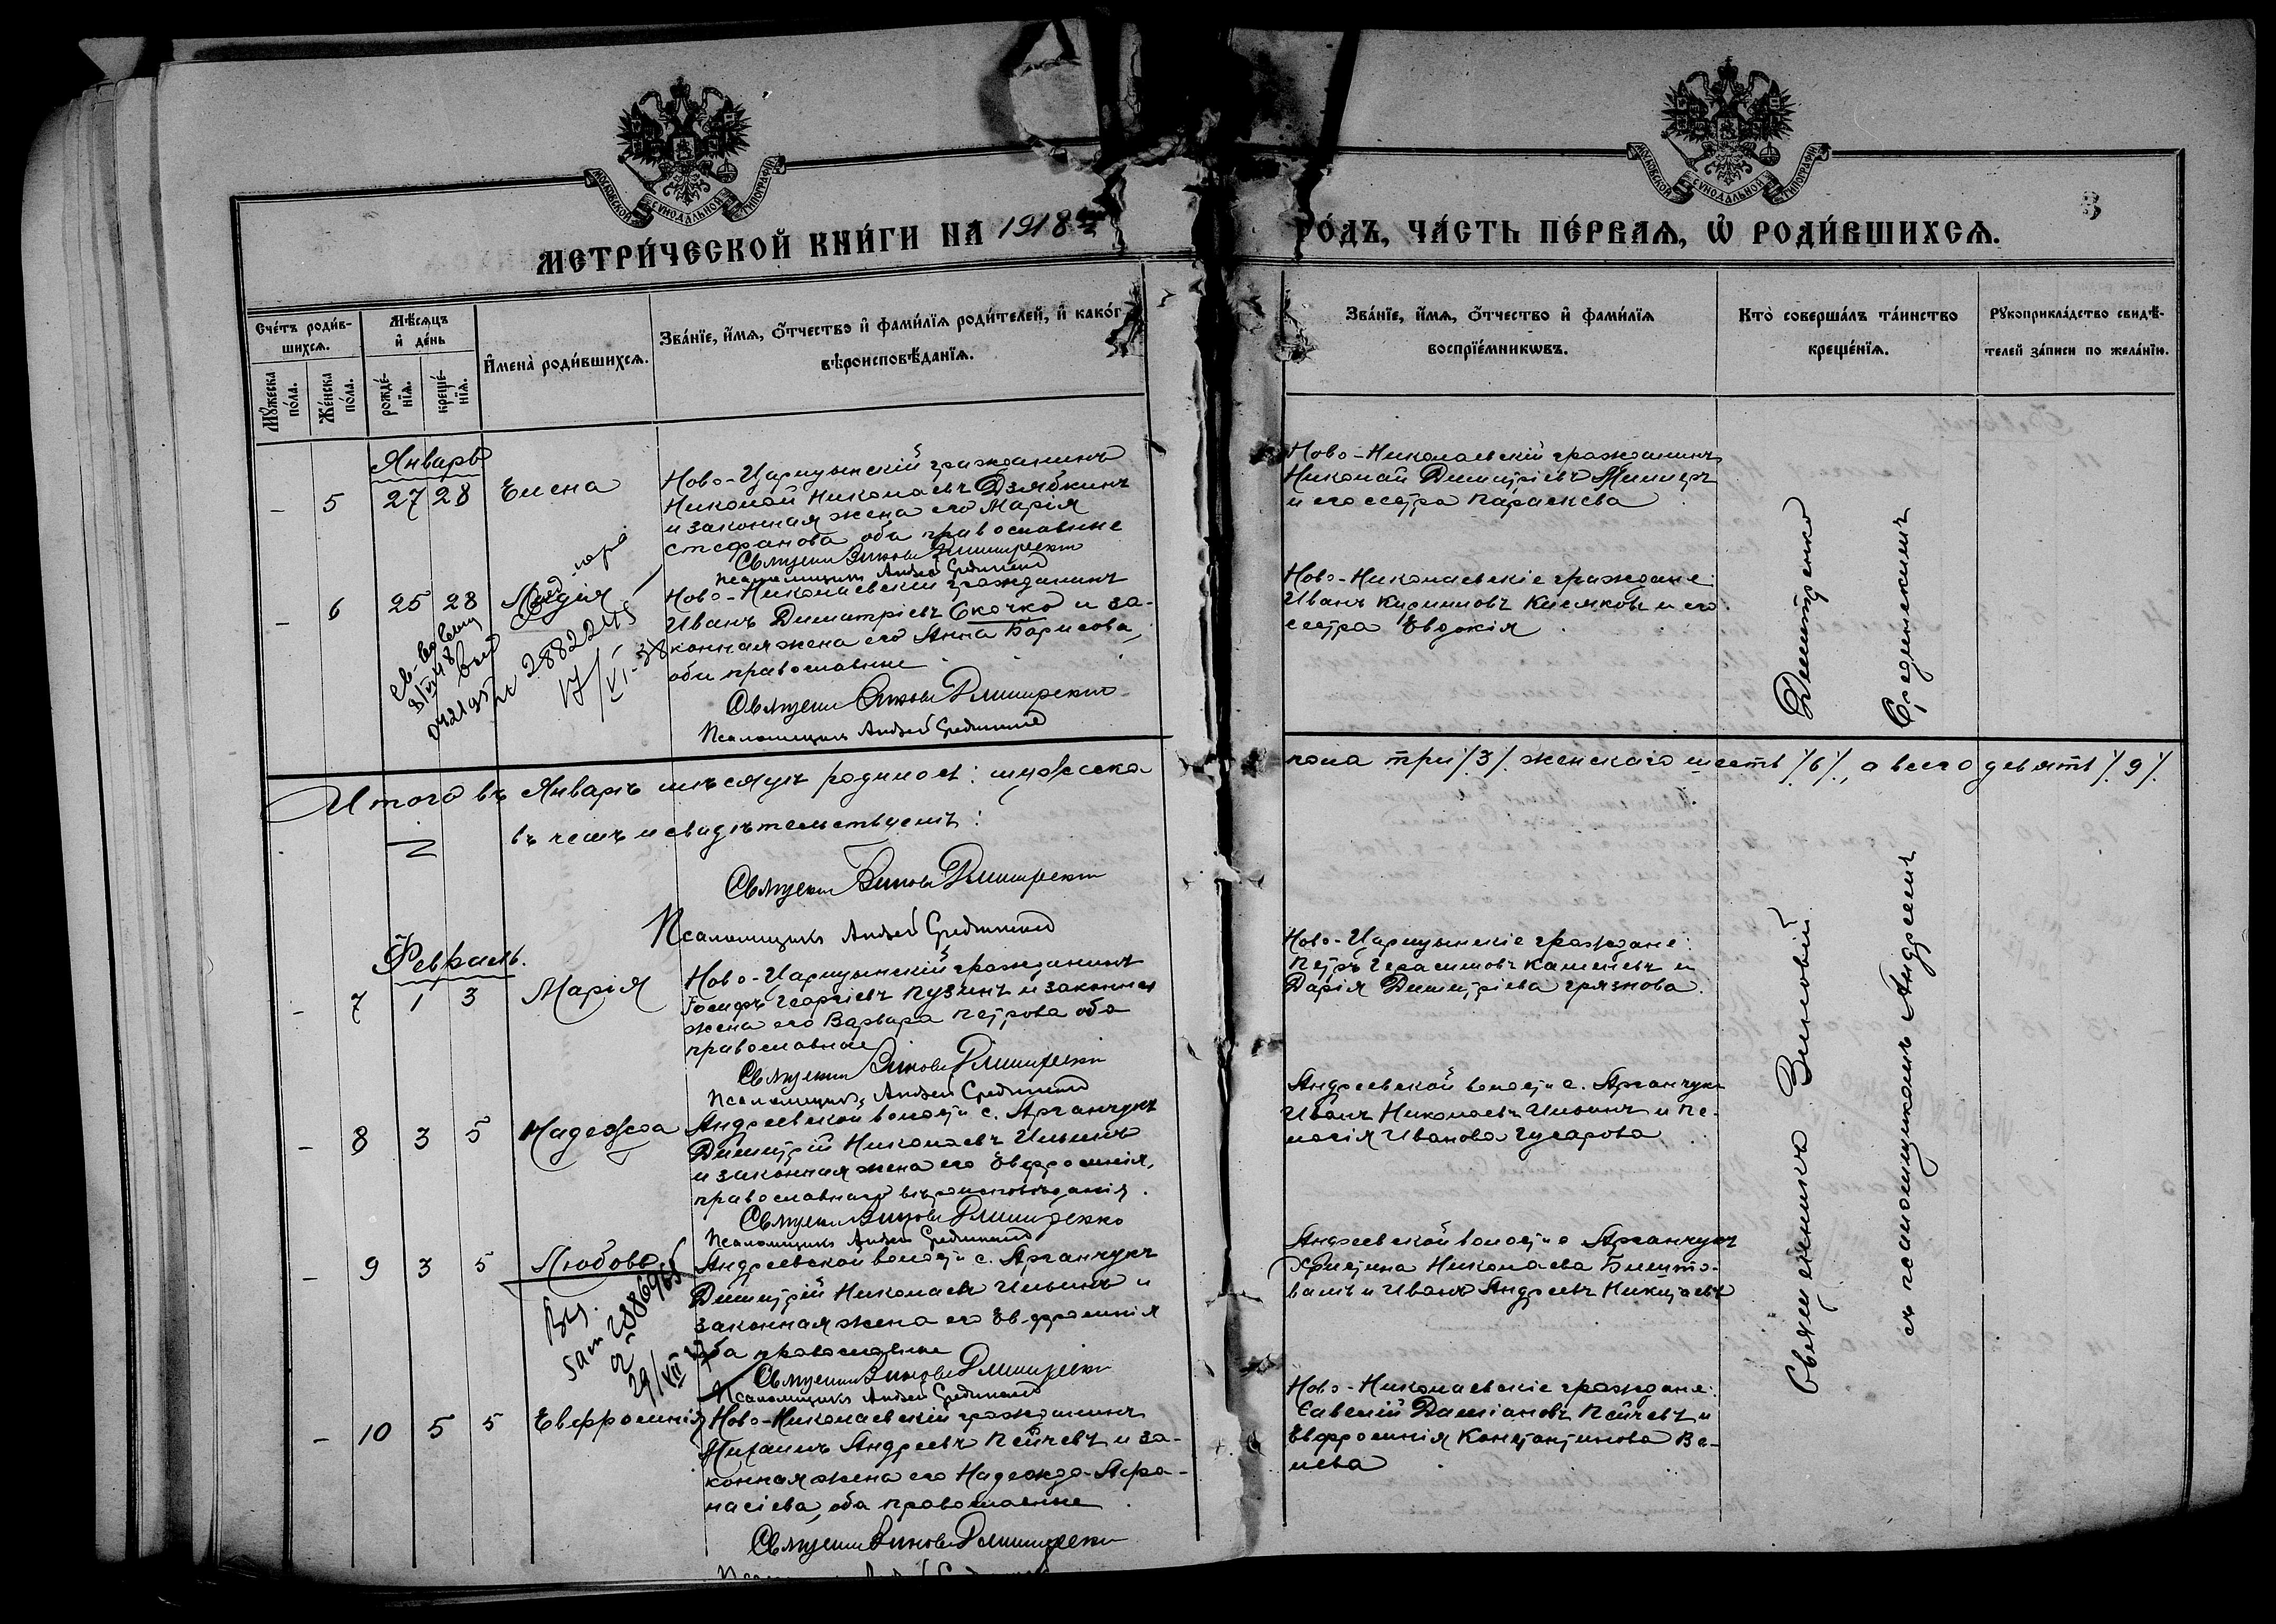 МОСКОВСКОЙ СѴНОДАЛЬНОЙ ТИПОГРАФИИ
МОСКОВСКОЙ СѴНОДАЛЬНОЙ ТИПОГРАФИИ
3
МЕТРИ́ЧЕСКОЙ КНИ́ГИ НА 1918
ГО́ДЪ, ЧА́СТЬ ПЕ́РВАЯ, Ѡ РОДИ́ВШИХСЯ.
Сче́тъ роди́в-
шихся.
Му́жеска по́ла.
Же́нска по́ла.
Мѣ́сяцъ
и де́нь
рожде́-
нїя.
креще́-
нїя.
Имена̀ роди́вшихся.
Зва́нїе, и́мя, о́тчество и фами́лїя роди́телей, и како́г
вѣроисповѣ́данїя.
Зва́нїе, и́мя, о́тчество и фами́лїя
воспрїе́мникωвъ.
Кто̀ соверша́лъ та́инство
креще́нїя.
Рукоприкла́дство свидѣ́-
телей за́писи по жела́нїю.
Январь
- 5 27 28 Елена
Ново-Царицынскій гражданинъ
Николай Николаевъ Дзябкинъ
и законная жена его Марія
Стефанова оба православные
Священ Зинові Дмитренко
Псаломщикъ Андрей Срединскій
Ново-Николаевскій гражданинъ
Николай Димитріевъ
и его сестра Параскева
- 6 25 28 Лидія
2882245
17/VI-38
Ново-Николаевскій гражданинъ
Иванъ Димитріевъ Скочко и за-
конная жена его Анна Борисова,
оба православные
Священ Зинові Дмитренко
Псаломщикъ Андрей Срединскій
Ново-Николаевскіе граждане:
Иванъ Кирилловъ Кисляковъ и его
сестра Евдокія
Итого въ Январѣ мѣсяцѣ родилось: мужеска
пола три /3/. женскаго шесть /6/., а всего девять /9/.
въ чемъ и свидѣтельствуемъ:
Священ Зинові Дмитренко
Псаломщикъ Андрей Срединскій
Февраль.
- 7 1 3 Марія
Ново-Царицынскій гражданинъ
Іосифъ Георгіевъ Пузинъ и законная
жена его Варвара Петрова оба
православные
Священ Зинові Дмитренко
Псаломщикъ Андрей Срединскій
Ново-Царицынскіе граждане:
Петръ Герасимовъ Каменевъ и
Дарія Димитріева Грязнова.
- 8 3 5 Надежда
Андреевской волости с. Арганчукъ
Димитрій Николаевъ Ильинъ
и законная жена его Евфросинія,
православнаго вѣроисповѣданія.
Священ Зинові Дмитренко
Псаломщикъ Андрей Срединскій
Андреевской волости с. Арганчукъ
Иванъ Николаевъ Ильинъ и Пе-
лагія Иванова Гусарова
- 9 3 5 Любовь
2886965
29/VII
Андреевской волости с. Арганчукъ
Димитрій Николаевъ Ильинъ и
законная жена его Евфросинія
оба православные
Священ Зинові Дмитренко
Псаломщикъ Андрей Срединскій
Андреевской волости с Арганчукъ
Христина Николаева
и Иванъ Андреевъ Никитаевъ
- 10 5 5 Евфросинія
Ново-Николаевскій гражданинъ
Михаилъ Андреевъ Пейчевъ и за-
конная жена его Надежда Афа-
насіева, оба православные
Священ Зинові Дмитренко
Ново-Николаевскіе граждане:
Савелій Даміановъ Пейчевъ и
Евфросинія Константинова Ве-
лева
Священникъ Зиновій Дмитренко
съ псаломщикомъ Андреемъ Срединскимъ